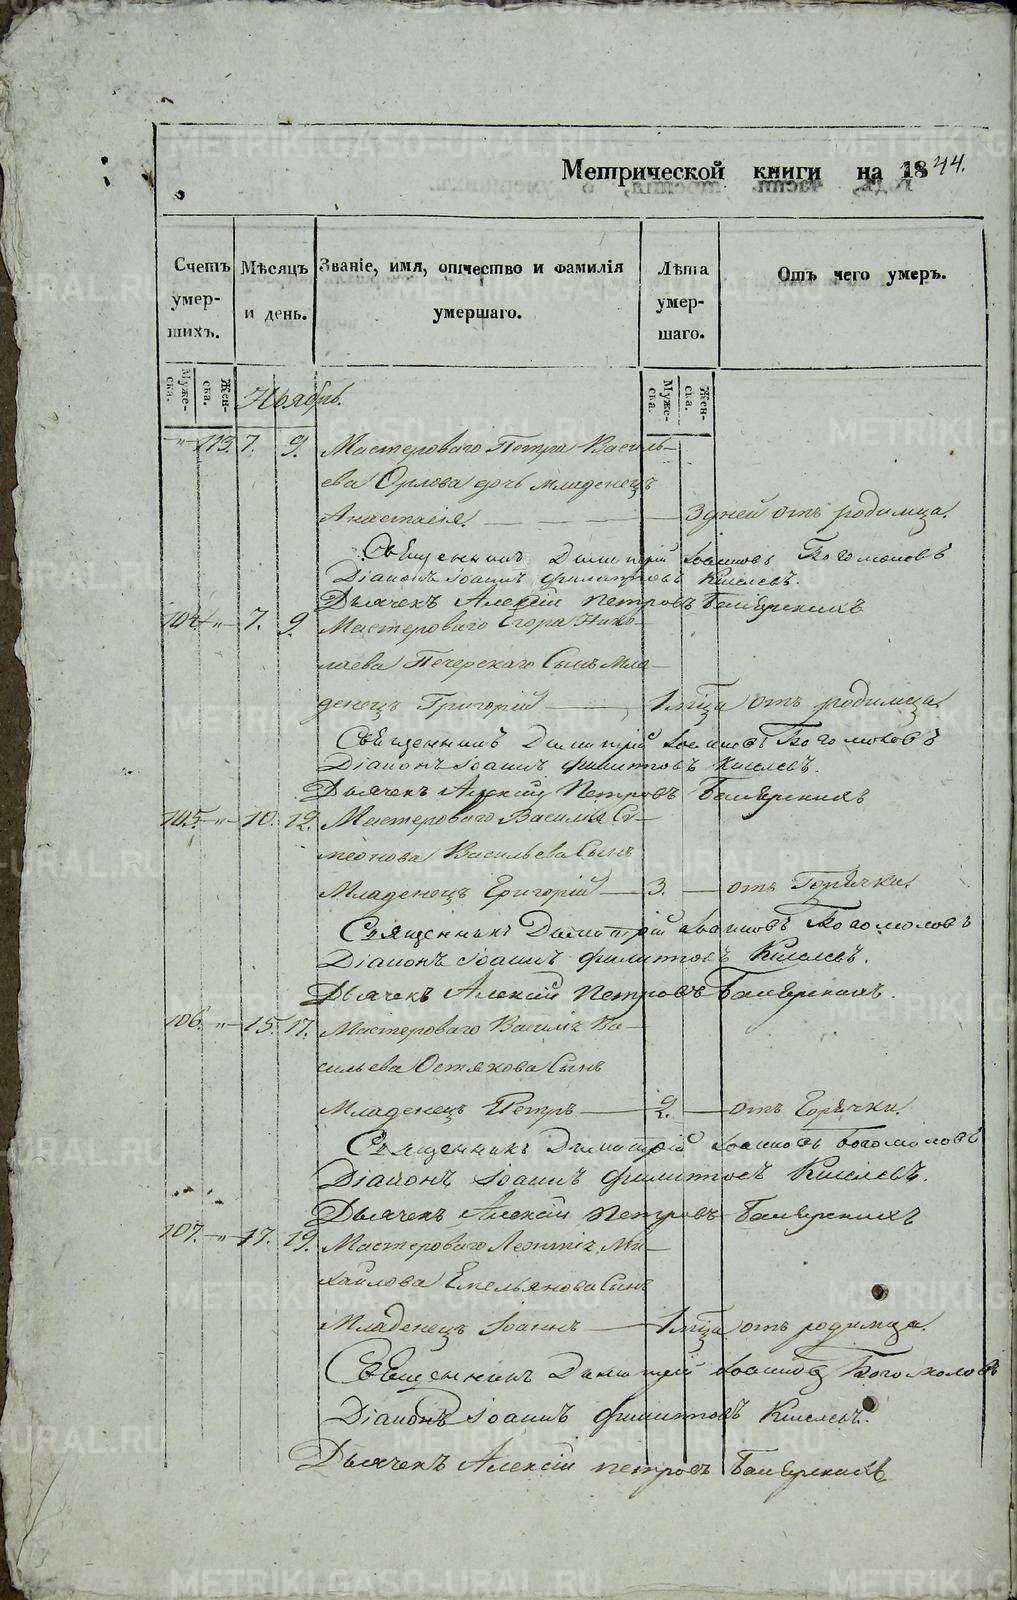 Метрической книги на 1844.
Счетъ умершихъ.
Мѣсяцъ и день.
Званіе, имя, отчество и фамилія умершаго.
Лѣта умершаго.
Отъ чего умеръ.
Мужеска.
Женска.
Мужеска.
Женска.
Ноябрь.
" 113. 7. 9. Мастероваго Петра Василь-
ева Орлова дочь младенецъ
Анастасія. 3 дней отъ родимца.
Священникъ Димитрій Іоанновъ Богомоловъ
Діаконъ Іоаннъ Филипповъ Киселевъ.
Дьячекъ Алексій Петровъ
104 " 7. 9. Мастероваго Егора Нико-
лаева Печерскаго Сынъ Мла-
денецъ Григорій 1 мца отъ родимца.
Священникъ Димитрій Іоанновъ Богомоловъ
Діаконъ Іоаннъ Филипповъ Киселевъ.
Дьячекъ Алексій Петровъ
105. " 10. 12. Мастероваго Василья Си-
меонова Васильева Сынъ
Младенецъ Григорій 3. отъ Горячки.
Священникъ Димитрій Іоанновъ Богомоловъ
Діаконъ Іоаннъ Филипповъ Киселевъ.
Дьячекъ Алексій Петровъ
106. " 15. 17. Мастероваго Василія Ва-
сильева Остякова Сынъ
Младенецъ Петръ 2. отъ Горячки.
Священникъ Димитрій Іоанновъ Богомоловъ
Діаконъ Іоаннъ Филипповъ Киселевъ.
Дьячекъ Алексій Петровъ
107. " 17. 19. Мастероваго Леонтія Ми-
хайлова Емельянова Сынъ
Младенецъ Іоаннъ 1 мца отъ родимца.
Священникъ Димитрій Іоанновъ Богомоловъ
Діаконъ Іоаннъ Филипповъ Киселевъ.
Дьячекъ Алексій Петровъ
METRIKI.GASO-URAL.RU